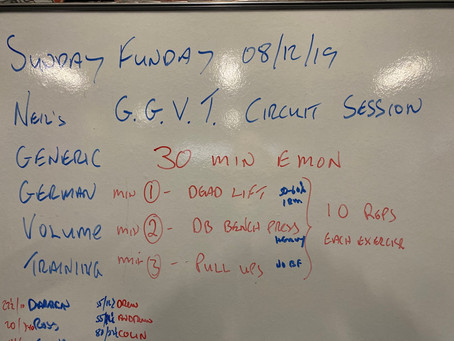 SUNDAY FUNDAY 08/12/19
NEIL'S G.G.V.T. CIRCUIT SESSION
GENERIC 30 MIN EMON
GERMAN MIN 1 - DEAD LIFT
VOLUME MIN 2 - DB BENCH PRESS HEAVY
TRAINING MIN 3 - PULL UPS NO BF
10 REPS
EACH EXERCISE
DARREN DREW
ROSS ANDREW
COLIN